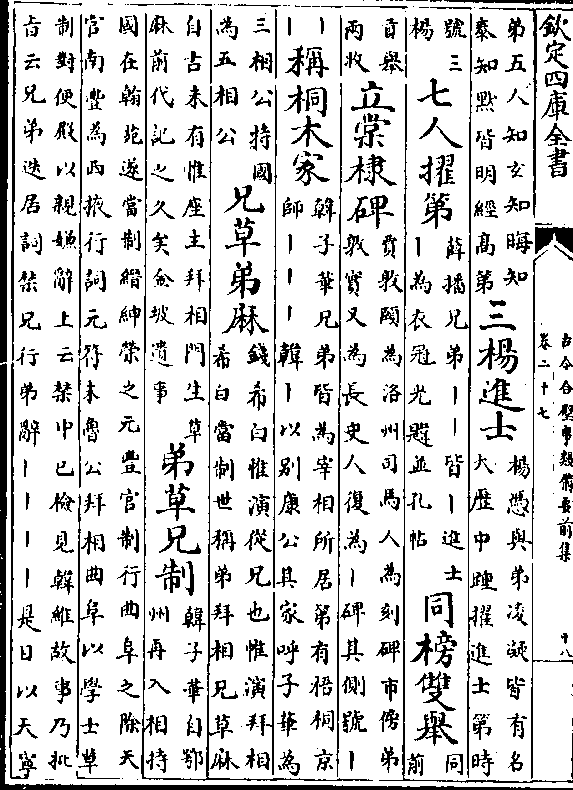 欽定四庫全書
古今合璧事類備要前集
卷二十七
十八
弟五人知玄知晦知
泰知默皆明經高第
三楊進士
楊憑與弟凌凝皆有名
大歷中踵擢進士第時
號三
楊
七人擢第
薛播兄弟｜｜皆｜進士
｜為衣冠光韙並孔帖
同榜雙舉
同
前
貢舉
兩收
立棠棣碑
賈敦頤為洛州司馬人為刻碑市傍弟
敦實又為長史人復為｜碑其側號｜
｜
稱桐木家
韓子華兄弟皆為宰相所居第有梧桐京
師｜｜｜韓｜以別康公其家呼子華為
三相公持國
為五相公
兄草弟麻
錢希白惟演從兄也惟演拜相
希白當制世稱弟拜相兄草麻
自古未有惟座主拜相門生草
麻前代記之久矣金坡遺事
弟草兄制
韓子華自鄂
州再入相持
國在翰苑遂當制縉紳榮之元豐官制行曲阜之除天
官南豐為西掖行詞元符末魯公拜相曲阜以學士草
制對便殿以親嫌辭上云禁中已檢見韓維故事乃批
旨云兄弟迭居詞禁兄行弟辭｜｜｜｜是日以天寧